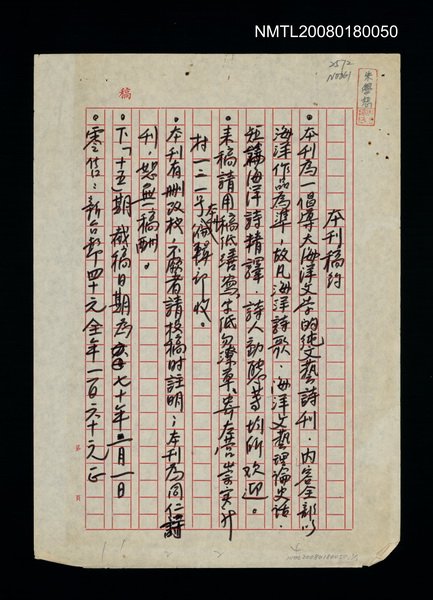 NMTL20080180050
2572
朱學恕
稿
本刊稿約
。本刊為一倡導大海洋文學的純文藝詩刊．內容全部以
海洋作品為準，故凡海洋詩歌．海洋文藝理論史話．
短論海洋詩精譯．詩人動態等均所欢迎。
。來稿請用稿紙繕寫字低勿潦草，寄左營崇实新
村一二一号本刊編輯部收。
。本刊有刪改权．不願者請投稿时註明；本刊為同仁詩
刊，恕無稿酬。
。下「十五」期截稿日期為七十年二月一日
。零售：新台幣四十元全年一百六十元正
第 頁
NMTL20080180050